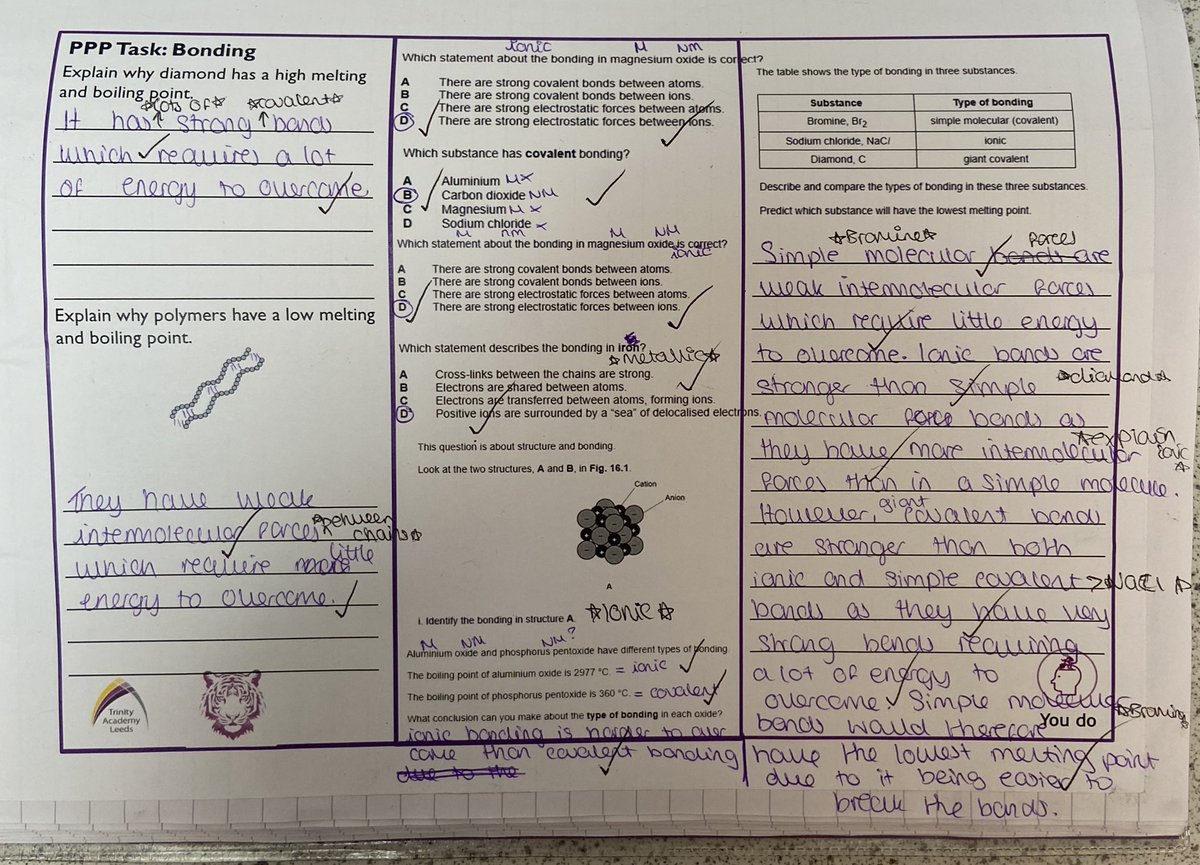 PPP Task: Bonding
Explain why diamond has a high melting
and boiling point.
☆lots of☆ ☆covalent☆
It has↑ strong ↑ bonds
which requires a lot
of energy to overcome.
Explain why polymers have a low melting
and boiling point.
They have weak
intermolecular forces ☆between
chains☆
which require little
energy to overcome.
Trinity
Academy
Leeds
ionic M NM
Which statement about the bonding in magnesium oxide is correct?
A There are strong covalent bonds between atoms.
B There are strong covalent bonds between ions.
C There are strong electrostatic forces between atoms.
D There are strong electrostatic forces between ions.
Which substance has covalent bonding?
A Aluminium M X
B Carbon dioxide NM
C Magnesium M X
D Sodium chloride X
M nm M NM
Which statement about the bonding in magnesium oxide is correct?
ionic
A There are strong covalent bonds between atoms.
B There are strong covalent bonds between ions.
C There are strong electrostatic forces between atoms.
D There are strong electrostatic forces between ions.
Which statement describes the bonding in iron?
☆metallic☆
A Cross-links between the chains are strong.
B Electrons are shared between atoms.
C Electrons are transferred between atoms, forming ions.
D Positive ions are surrounded by a "sea" of delocalised electrons.
This question is about structure and bonding.
Look at the two structures, A and B, in Fig. 16.1.
Cation
Anion
A
i. Identify the bonding in structure A. ☆Ionic☆
M NM NM ?
Aluminium oxide and phosphorus pentoxide have different types of bonding.
The boiling point of aluminium oxide is 2977 °C. = ionic
The boiling point of phosphorus pentoxide is 360 °C. = covalent
What conclusion can you make about the type of bonding in each oxide?
ionic bonding is harder to over
come than covalent bonding
due to the
The table shows the type of bonding in three substances.
Substance Type of bonding
Bromine, Br₂ simple molecular (covalent)
Sodium chloride, NaCl ionic
Diamond, C giant covalent
Describe and compare the types of bonding in these three substances.
Predict which substance will have the lowest melting point.
☆Bromine☆ forces
Simple molecular bonds are
weak intermolecular forces
which require little energy
to overcome. Ionic bonds are
stronger than simple ☆diamond☆
molecular force bonds as
they have more intermolecular ☆explain
ionic☆
forces than in a simple molecule.
However, giant covalent bonds
are stronger than both
ionic and simple covalent > NaCl ☆
bonds as they have very
strong bonds requiring
a lot of energy to
overcome. Simple molecular
bonds would therefore ☆Bromine☆
You do
have the lowest melting point
due to it being easier to
break the bonds.